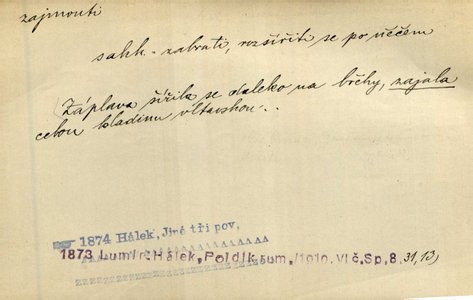 zajmouti
sahh - zabrati, rozšířiti se po něčem
Záplava šířila se daleko na břehy, zajala
celou hladinu vltavskou...
1874 Hálek, Jiné tři pov,
1873 Lumír: Hálek, Poldík rum, /1910. VI č. Sp, 8, 31, 13,